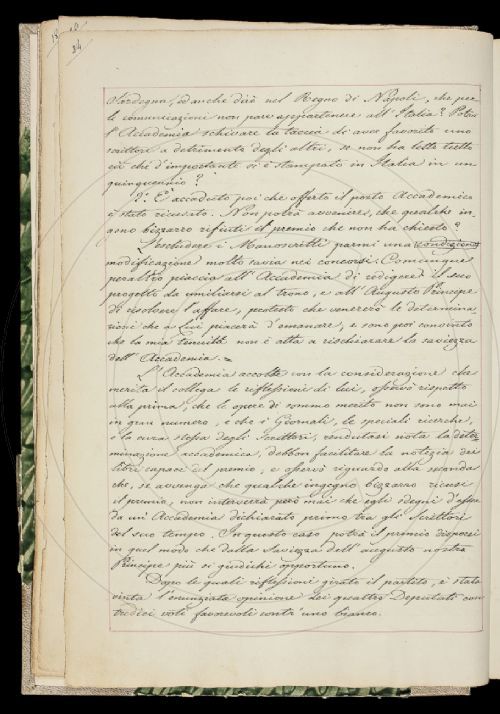 13
24
Sardegna, ed anche dirò nel Regno di Napoli, che per
le comunicazioni non pare appartenere all'Italia? Potrà
l'Accademia schivare la taccia di aver favorito uno
scrittore a detrimento degli altri, se non ha letto tutto
ciò che d'importante si è stampato in Italia in un
quinquennio?
2.° È accaduto poi che offerto il posto Accademico
è stato ricusato. Non potrà avvenire, che qualche in-
gegno bizzarro rifiuti il premio che non ha chiesto?
L'escludere i Manoscritti parmi una condizione
modificazione molto savia nei concorsi. Comunque
peraltro piaccia all'Accademia di redigere il suo
progetto da umiliarsi al trono, e all'Augusto Principe
di risolvere l'affare, protesto che venererò le determina
zioni che a Lui piacerà d'emanare, e sono poi convinto
che la mia tenuità non è atta a rischiarare la saviezza
dell'Accademia.=
L'Accademia accolte con la considerazione che
merita il collega le riflessioni di lui, osservò rispetto
alla prima, che le opere di sommo merito non sono mai
in gran numero, e che i Giornali, le speciali ricerche,
e la cura stessa degli Scrittori, rendutasi nota la deter-
minazione accademica, debbon facilitare la notizia dei
libri capaci del premio, e osservò riguardo alla seconda
che, se avvenga che qualche ingegno bizzarro ricusi
il premio, non interverrà però mai che egli sdegni d'esser
da un'Accademia dichiarato primo tra gli Scrittori
del suo tempo. In questo caso potrà il premio disporsi
in quel modo che dalla Saviezza dell'augusto nostro
Principe più si giudichi opportuno.
Dopo le quali riflessioni girato il partito, è stata
vinta l'enunziata opinione dei quattro Deputati con
tredici voti favorevoli contr'uno bianco.